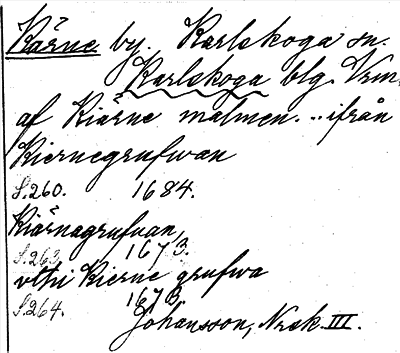 Kärne by. Karlskoga sn.
Karlskoga blg. Vrm.
af Kiärne malmen... ifrån
Kiernegrufwan
S.260. 1684.
Kiärnagrufvan
S.263. 1673.
vthi Kierne grufwa
S.264. 1673
Johansson, Norsk. III.